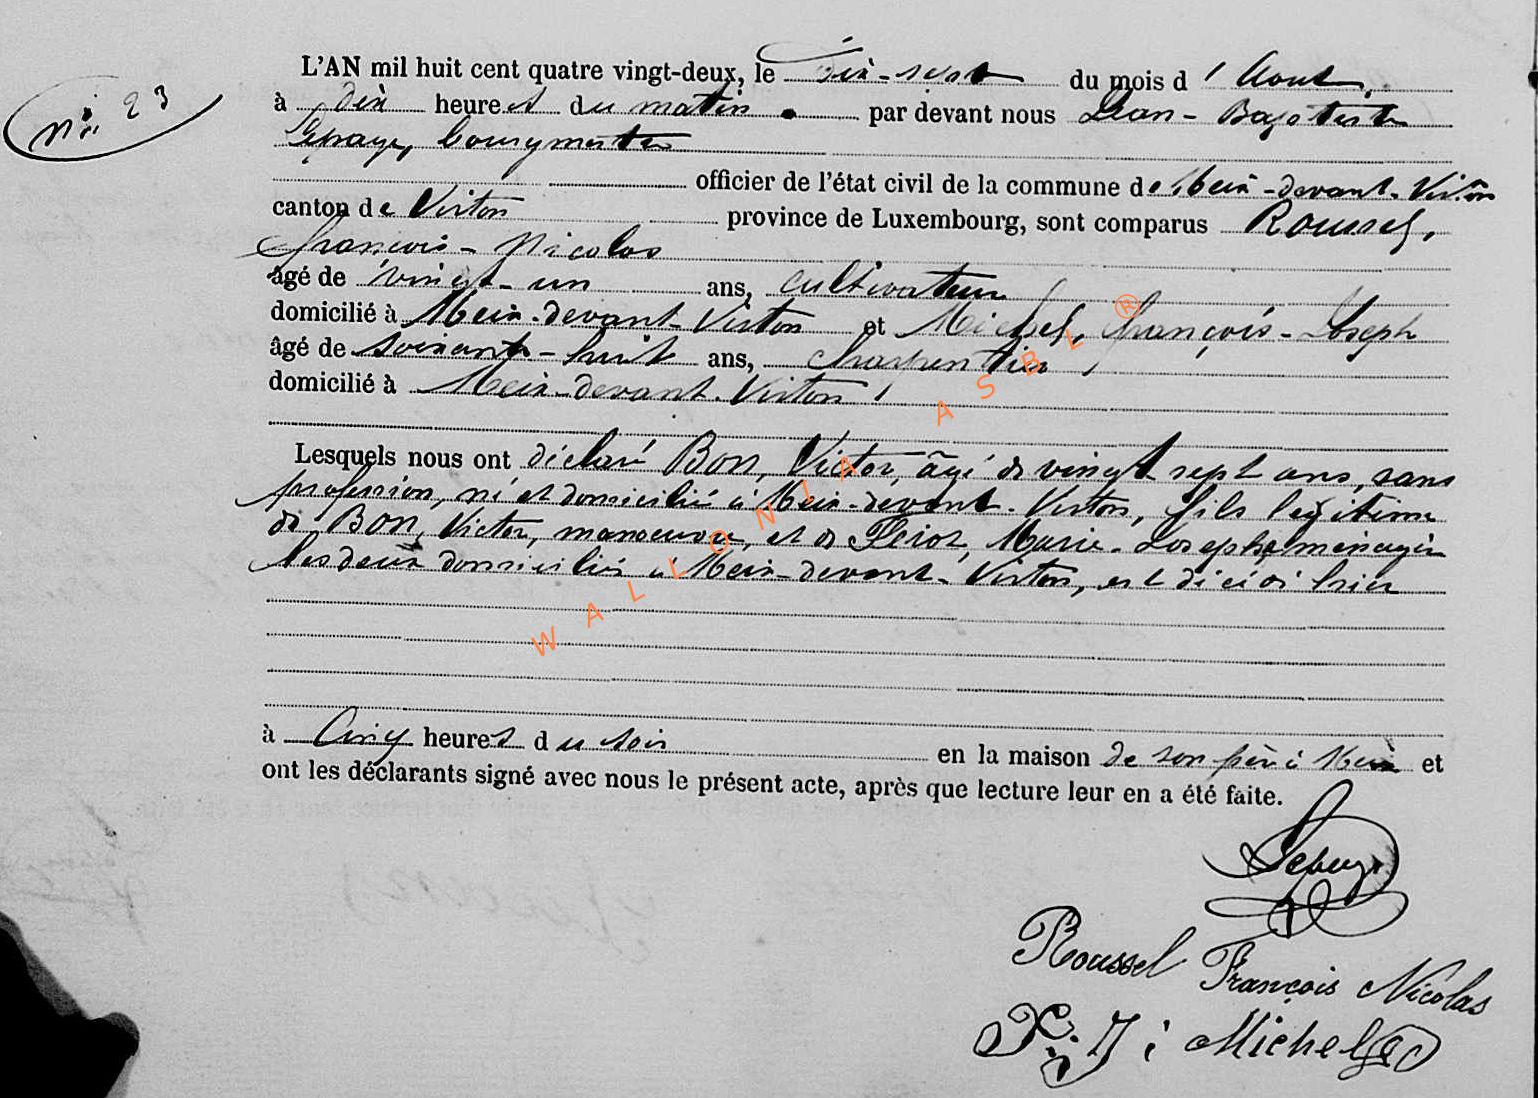 N° 23
L'AN mil huit cent quatre vingt-deux, le Dix-sept du mois d'Aout,
à dix heures du matin par devant nous Jean-Baptiste
Lepage, bourgmestre
officier de l'état civil de la commune de Meix-devant-Virton
canton de Virton province de Luxembourg, sont comparus Roussel,
François-Nicolas
âgé de vingt-un ans, cultivateur
domicilié à Meix-devant-Virton et Michel, François-Joseph
âgé de soixante-huit ans, charpentier,
domicilié à Meix-devant-Virton,
Lesquels nous ont déclaré Bon, Victor, âgé de vingt sept ans, sans
profession, né et domicilié à Meix-devant-Virton, fils légitime
de Bon, Victor, manoeuvre, et de Marie-Josephe, ménagère
les deux domiciliés à Meix-devant-Virton, est décédé hier
à Cinq heures du soir en la maison de son père à Meix et
ont les déclarants signé avec nous le présent acte, après que lecture leur en a été faite.
Lepage
Roussel François Nicolas
Michel
WALLONIA ASBL ®